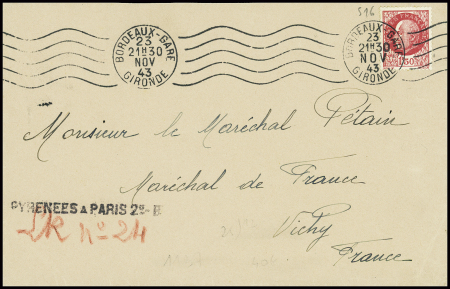 516
BORDEAUX-GARE
23
21H30
NOV
43
GIRONDE
BORDEAUX-GARE
23
21H30
NOV
43
GIRONDE
1F50
Monsieur le Maréchal Pétain
Maréchal de France
Vichy
France
PYRENEES A PARIS 2º
LR nº 24